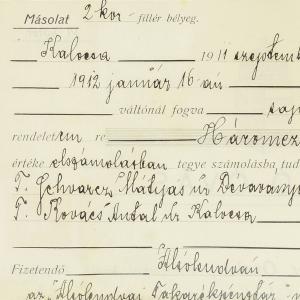 Másolat 2 kor - fillér bélyeg.
Kalocsa 1911 szeptem
1912 január 16-án
váltónál fogva
rendeletem re Háromez
értéke elszámolásban tegye számolásba tud
T. Schvarcz Mátyás úr Dévavány
T. Kovács Antal úr Kalocsa
Fizetendő Alsólendván
az "Alsólendvai Takarékpénztár"